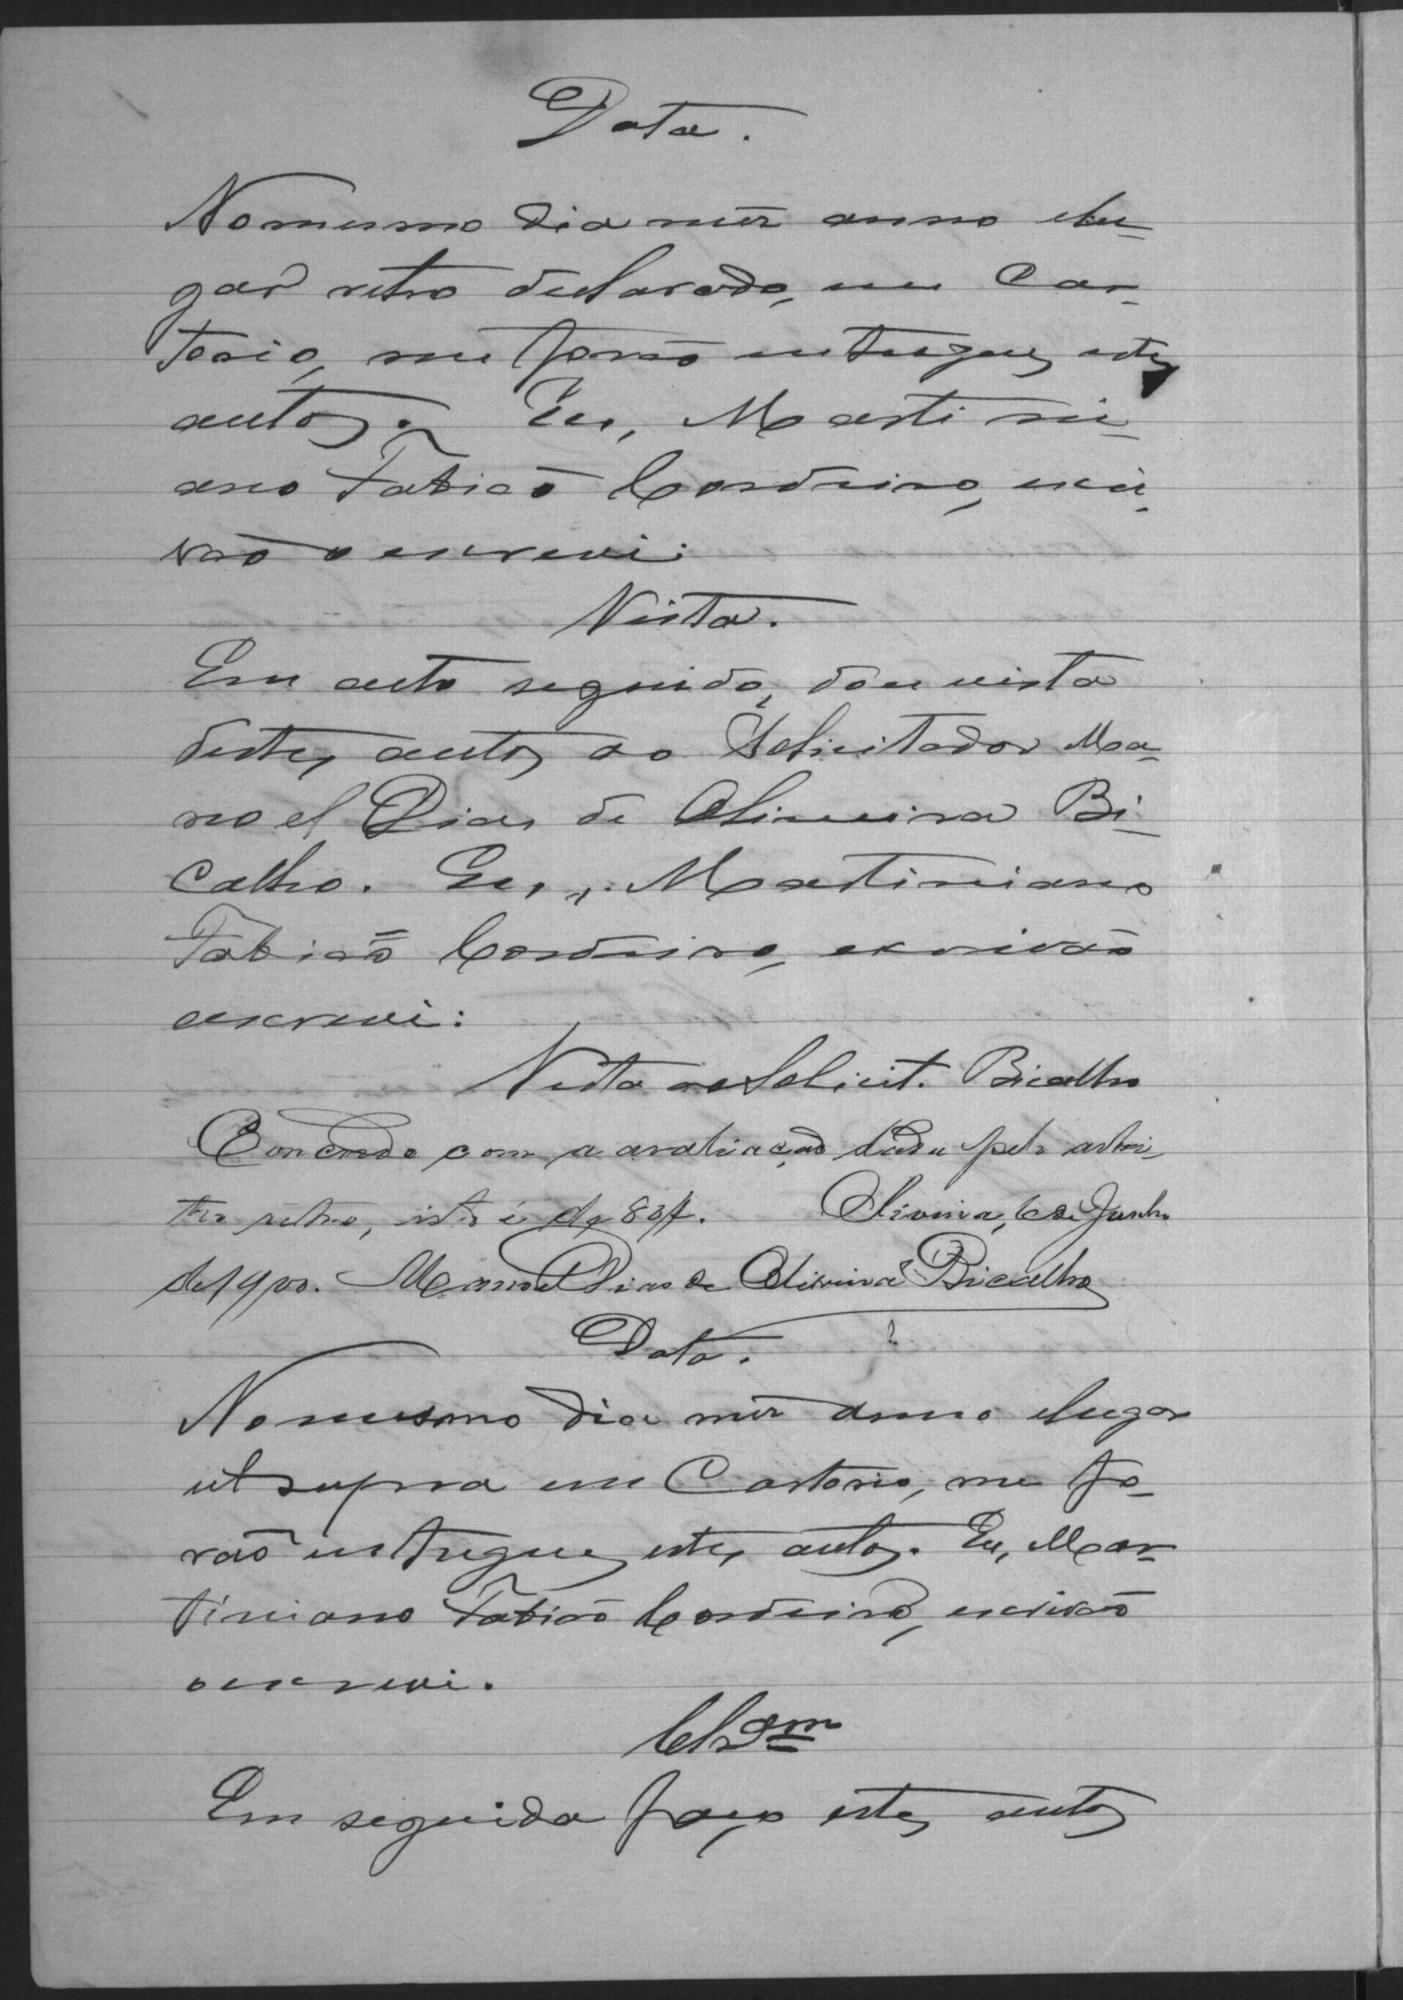 Data.
No mesmo dia mez anno e lu-
gar retro declarado, em Car-
torio, me forão entregues estes
autos. Eu, Martini-
ano Fabião Cordeiro, escri-
vão o escrevi:
Vista.
Em acto seguido, dou vista
destes autos ao Solicitador Ma-
noel Dias de Oliveira Bi-
calho. Eu, Martiniano
Fabião Cordeiro, escrivão
escrevi:
Vista ao Solicit. Bicalho
Concordo com a avaliação dada pelo arbi-
tro retro, isto é de
Oliveira, 6 de Junho
de 1900. Manoel Dias de Oliveira Bicalho
Data.
No mesmo dia mez anno e lugar
ut supra em Cartorio, me fo-
rão entregues estes autos. Eu, Mar-
tiniano Fabião Cordeiro, escrivão
o escrevi.
Clsam
Em seguida faço estes autos